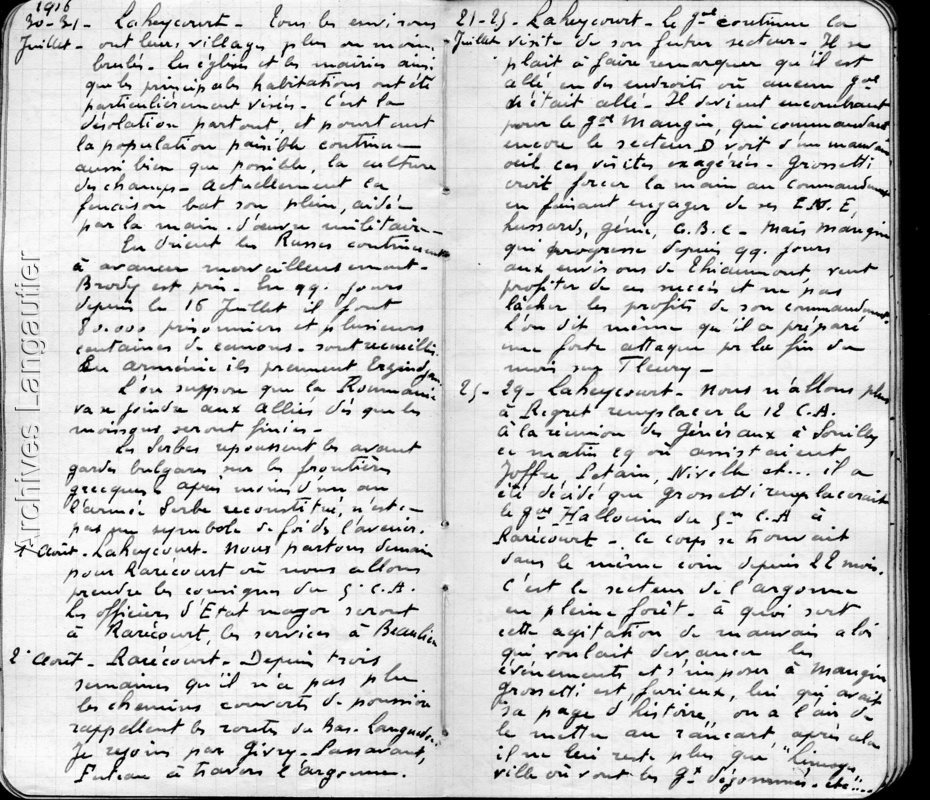 1916
30-31- Laheycourt - Tous les environs
Juillet - ont leurs villages plus ou moins
brulés - Les églises et les mairies ainsi
que les principales habitations ont été
particulièrement visées - C'est la
désolation partout, et pourtant
la population paisible continue
aussi bien que possible, la culture
des champs - Actuellement la
fenaison bat son plein, aidée
par la main - d'œuvre militaire -
En Orient les Russes continuent
à avancer merveilleusement -
Brody est pris - En qq. jours
depuis le 16 Juillet il font
80.000 prisonniers et plusieurs
centaines de canons - sont recueillis.
En arménie ils prennent Erzindjan
L'on suppose que la Roumanie
va se joindre aux Alliés dès que les
moissons seront finies -
Les Serbes repoussent les avant
gardes bulgares sur les frontières
grecques après moins d'un an
l'armée Serbe reconstituée, n'est-ce
pas un symbole de foi ds l'avenir.
1 Août - Laheycourt - Nous partons demain
pour Rarécourt où nous allons
prendre les consignes du 5e C.A.
Les officiers d'Etat major seront
à Rarécourt, les services à Beaulieu
2 Août - Rarécourt - Depuis trois
semaines qu'il n'a pas plu
les chemins couverts de poussière
rappellent les routes du Bas-Languedoc.
Je rejoins par Givry - Passavant,
Futeau à travers l'argonne.
21-25 - Laheycourt - Le Gal continue la
Juillet visite de son futur secteur - Il se
plait à faire remarquer qu'il est
allé en des endroits où aucun gal
n'était allé - Il devient encombrant
pour le gal Mangin, qui commandant
encore le secteur D voit d'un mauvais
œil ces visites exagérées - Grossetti
croit forcer la main au commandement
en faisant engager de ses E.N.E,
hussards, génie, C.B.C - Mais Mangin
qui progresse depuis qq. jours
aux environs de Thiaumont, veut
profiter de ces succès et ne pas
lâcher les profits de son commandement.
L'on dit même qu'il a préparé
une forte attaque pr la fin du
mois sur Fleury -
25 - 29 - Laheycourt - Nous n'allons plus
à Regret remplacer le 12 C.A.
à la réunion des Généraux à Souilly
ce matin 29 où assistaient
Joffre, Petain, Nivelle et... il a
été décidé que Grossetti remplacerait
le gal Hallouin du 5me C.A à
Rarécourt - Ce corps se trouvait
dans le même coin depuis 22 mois.
C'est le secteur de l'argonne
en pleine forêt - à quoi sert
cette agitation de mauvais aloi
qui voulait devancer les
évènements et s'imposer à Mangin
Grossetti est furieux, lui qui avait
"sa page d'histoire", on a l'air de
le mettre au rancart, après cela
il ne lui reste plus que "Limoges,
ville où vont les Gx dégommés - etc"...
Archives Langautier